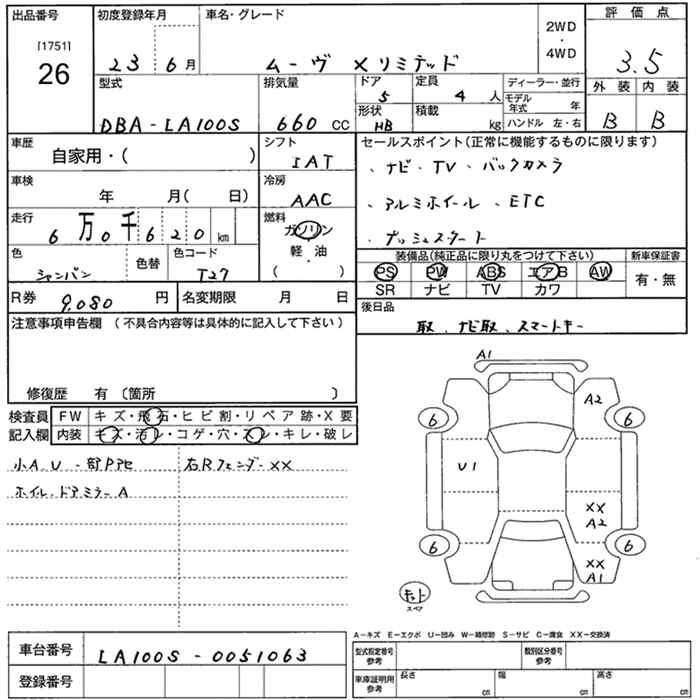 出品番号 初度登録年月 車名・グレード 2WD・4WD 評価点
[1751] 26
23 6月 ムーヴ Xリミテッド 3.5
型式 排気量 ドア 5 定員 4人 ディーラー・並行 外装 内装
DBA-LA100S 660 CC 形状 HB 積載 kg モデル年式 年 B B
ハンドル 左・右
車歴 自家用・( ) シフト IAT セールスポイント(正常に機能するものに限ります)
、ナビ・TV、バックカメラ
車検 年 月( 日) 冷房 AAC
、アルミホイール、ETC
走行 6万0千620km 燃料 ガソリン・軽・油 ( )
、プッシュスタート
色 シャンパン 色替 色コード T27
装備品(純正品に限り丸をつけて下さい) 新車保証書
PS PW ABS エアB AW 有・無
SR ナビ TV カワ
R券 9,080円 名変期限 月 日
後日品
取、ナビ取、スマートキー
注意事項申告欄(不具合内容等は具体的に記入して下さい)
修復歴 有(箇所 )
検査員記入欄 FW キズ・飛石・ヒビ割・リペア跡・X要
内装 キズ・汚レ・コゲ・穴・スレ・キレ・破レ
小A、U 右Rフェンダ-XX
ホイル、ドアミラーA
A1
A2
6 6
U1
XX
A2
6 6
XX
A1
キット
スペア
A-キズ E-エクボ U-凹み W-補修跡 S-サビ C-腐食 XX-交換済
車台番号 LA100S-0051063
登録番号
型式指定番号参考 類別区分番号参考
車庫証明用参考 長さ cm 幅 cm 高さ cm